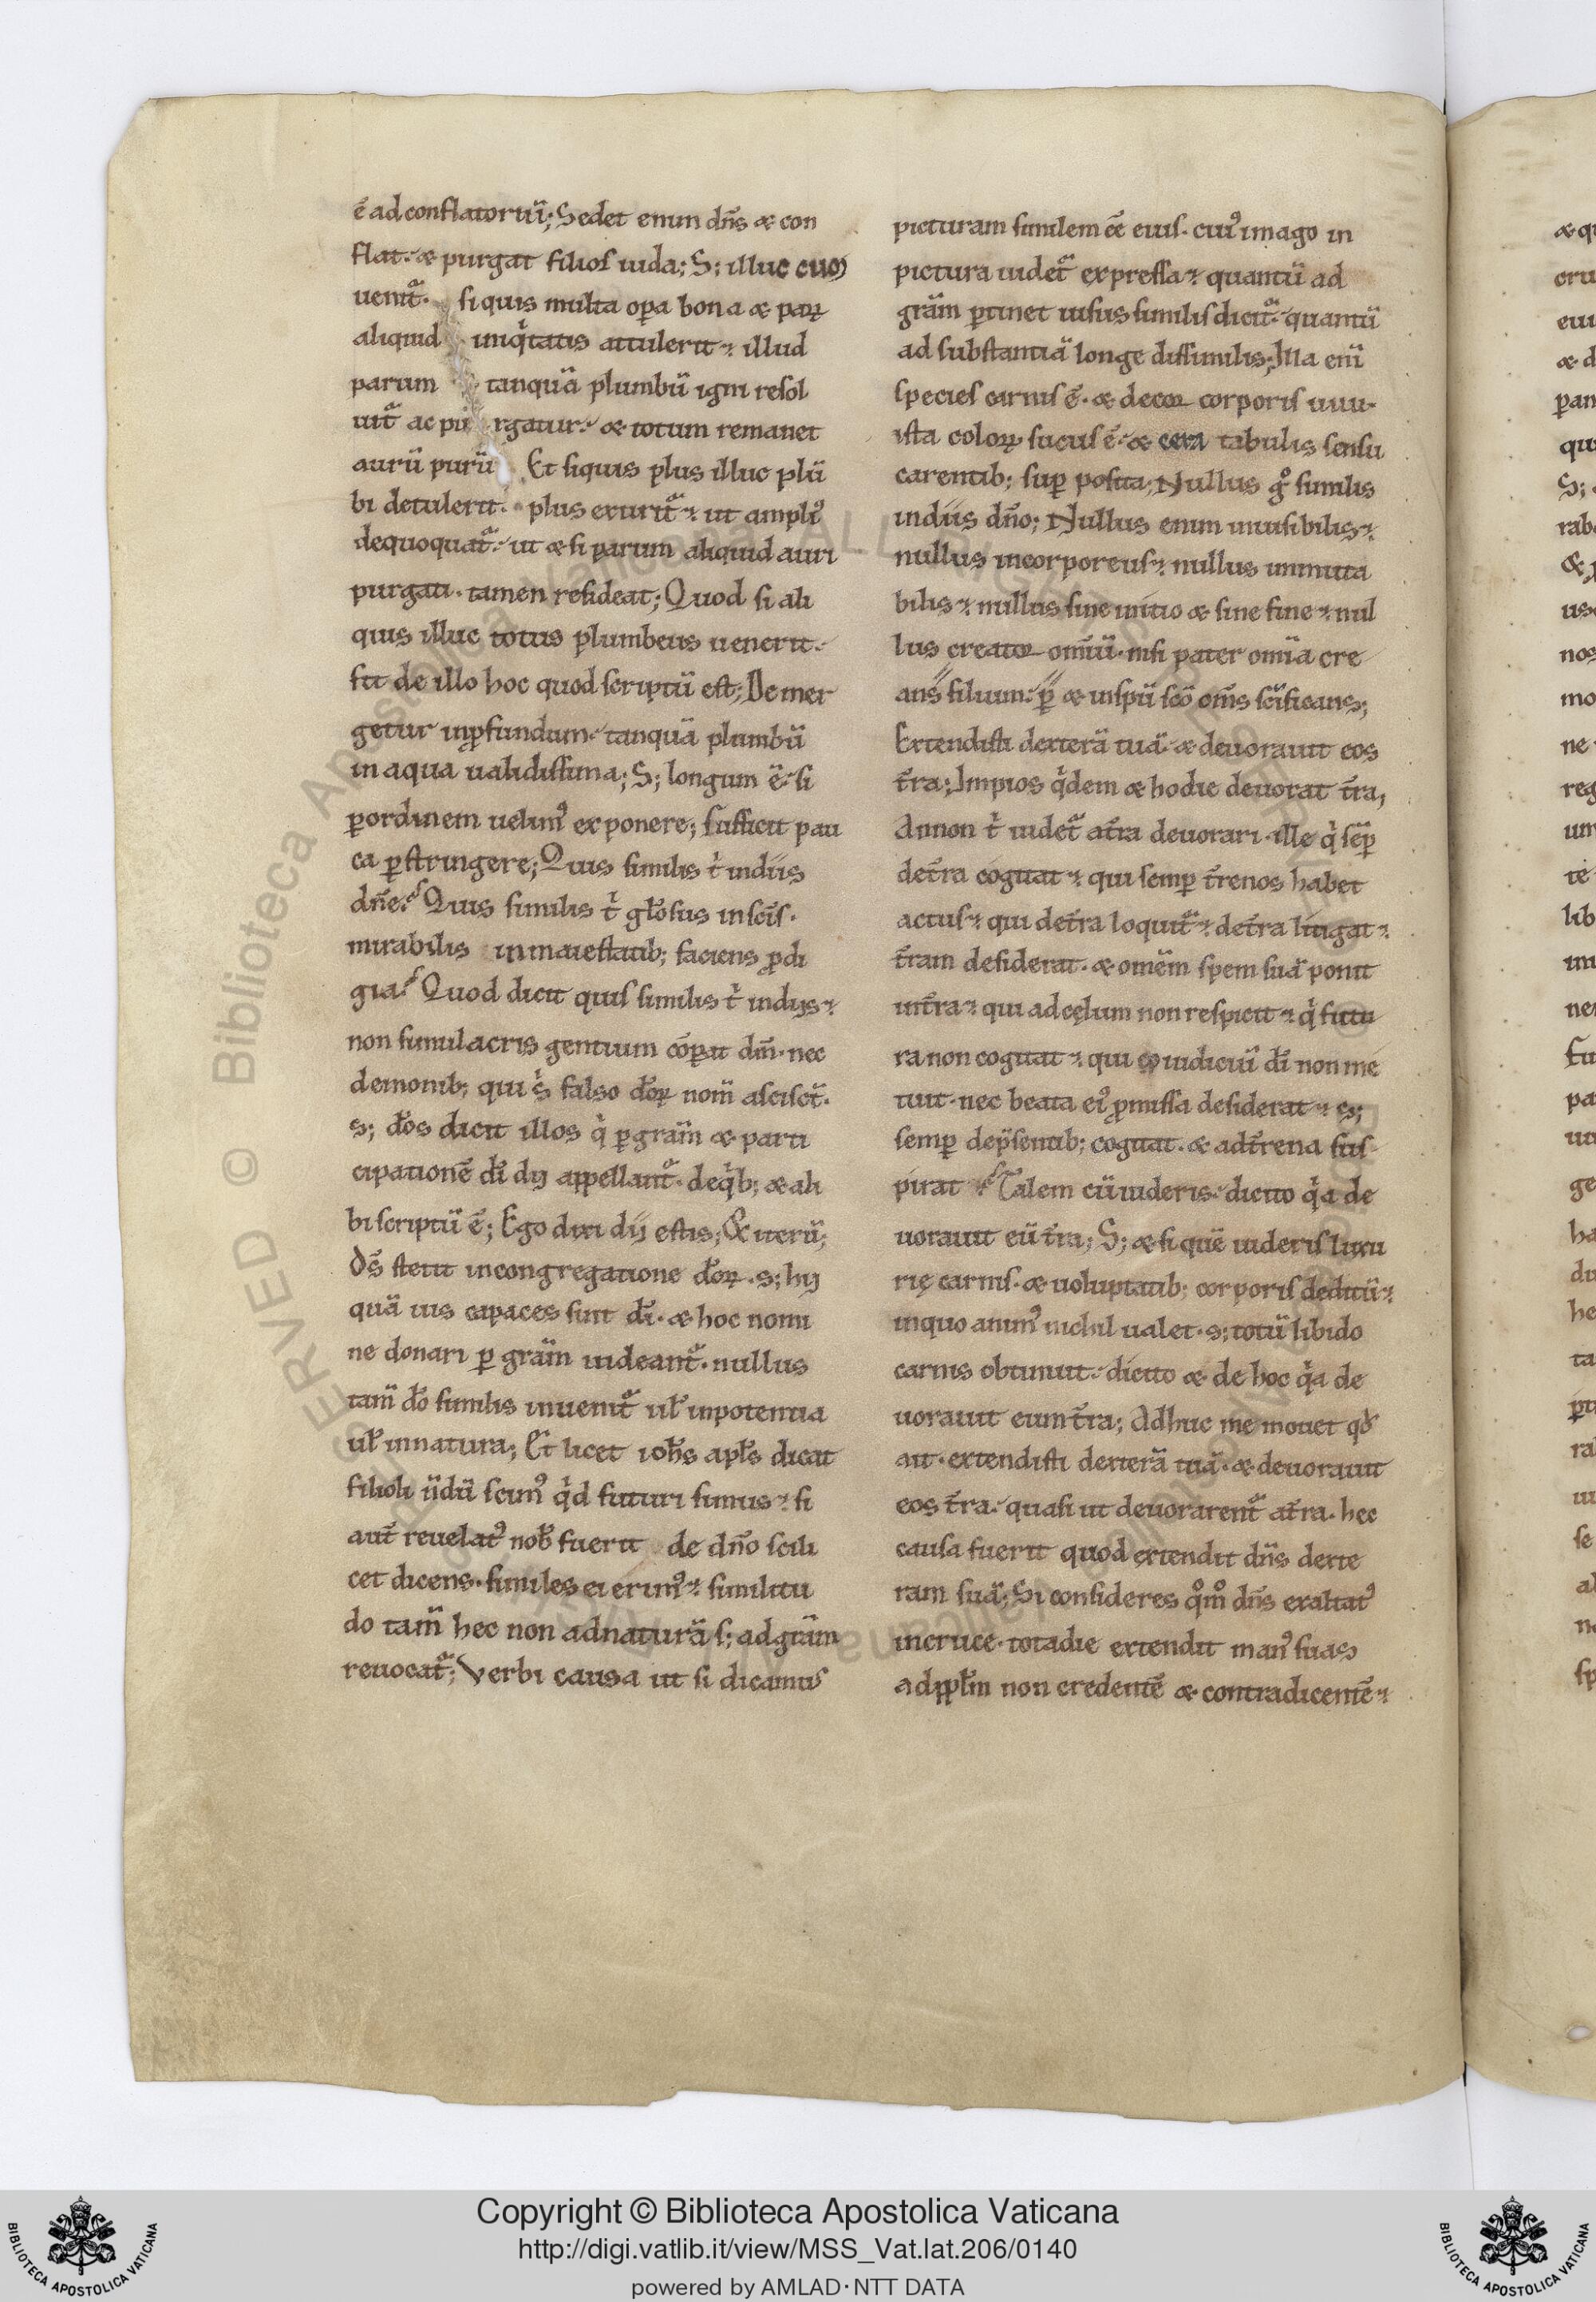 ē ad conflatoriū; Sedet enim dn̄s & con
flat. & purgat filios iuda; S; illuc cum
uenit᷑. si quis multa oꝑa bona & parꝝ
aliquid iniqͥtatis attulerit. illud
parum tanquā plumbū igni resol
uit᷑ ac pu rgatur. & totum remanet
aurū purū Et siquis plus illuc plū
bi detulerit. plus exurit᷑. ut ampliꝰ
dequoquat᷑. ut & si parum aliquid auri
purgati. tamen resideat; Quod si ali
quis illuc totus plumbeus uenerit.
fit de illo hoc quod scriptū est; Demer
getur inꝓfundum. tanquā plumbū
in aqua ualidissima; S; longum ē. si
ꝑordinem uelimꝰ exponere; sufficit pau
ca ꝑstringere; Quis similis tͥ indiis
dn̄e? Quis similis tͥ gl̄osus insc̄is.
mirabilis inmaiestatib; faciens ꝓdi
gia? Quod dicit quis similis tͥ indijs.
non simulacris gentium cōꝑat dm̄. nec
demonib; qui sͥ falso dōꝝ nom̄ ascisct᷑.
s; dōs dicit illos qͥ ꝑ grām & parti
cipationē di̅ dij appellant᷑. deqͥb; & ali
bi scriptū ē; Ego dixi dij estis; & iterū;
Ds̄ stetit incongregatione dōꝝ. s; hij
quā uis capaces sint di̅. & hoc nomi
ne donari ꝑ grām uideant᷑. nullus
tam̄ dō similis inuenit᷑ ul̄ inpotentia
ul̄ innatura; Et licet ioh̄s apl̄s dicat
filioli n̄dū scimꝰ qͥd futuri simus. si
aut̄ reuelatꝰ nob̄ fuerit de dn̄o scili
cet dicens. similes ei erimꝰ. similitu
do tam̄ hec non adnaturā s; adgrām
reuocat᷑; Verbi causa ut si dicamus
picturam similem eē eius. cuiꝰ imago in
pictura uidet᷑ expressa. quantū ad
grām ꝑtinet uisus similis dicit᷑. quantū
ad substantiā longe dissimilis; Illa eni̅
species carnis ē. & decor corporis uiui.
ista coloꝝ fucus ē. & cera tabulis sensu
carentib; suꝑ posita; Nullus gͦ similis
indiis dn̄o; Nullus enim inuisibilis.
nullus incorporeus. nullus inmuta
bilis. nullus sine initio & sine fine. nul
lus creator omniū. nisi pater omīa cre
ans filium. ꝑ & inspū scō om̄s sc̄ificans;
Extendisti dexterā tuā. & deuorauit eos
t̄ra; Impios qͥdem & hodie deuorat t̄ra,
Annon tͥ uidet᷑ at̄ra deuorari. ille qͥ sēꝑ
det̄ra cogitat. qui semꝑ t̄renos habet
actus. qui det̄ra loquit᷑. det̄ra litigat.
t̄ram desiderat. & omēm spem suā ponit
int̄ra. qui adcęlum non respicit. qͥ futu
ra non cogitat. qui iudiciū di̅ non me
tuit. nec beata eiꝰ ꝓmissa desiderat. s;
semꝑ dep̄sentib; cogitat. & adt̄rena sus
pirat. Talem cū uideris. dicito qͥa de
uorauit eū t̄ra; S; & si quē uideris luxu
rię carnis. & uoluptatib; corporis deditū.
inquo animꝰ nichil ualet. s; totū libido
carnis obtinuit. dicito & de hoc qͥa de
uorauit eum t̄ra; Adhuc me mouet qd̄
ait. extendisti dexterā tuā. & deuorauit
eos t̄ra. quasi ut deuorarent᷑ at̄ra. hec
causa fuerit quod extendit dn̄s dexte
ram suā; Si consideres qͦmͦ dn̄s exaltatꝰ
incruce. totadie extendit manꝰ suas
adpopl̄m non credentē & contradicentē.
Copyright © Biblioteca Apostolica Vaticana
http://digi.vatlib.it/view/MSS_Vat.lat.206/0140
powered by AMLAD·NTT DATA
BIBLIOTECA APOSTOLICA VATICANA
BIBLIOTECA APOSTOLICA VATICANA